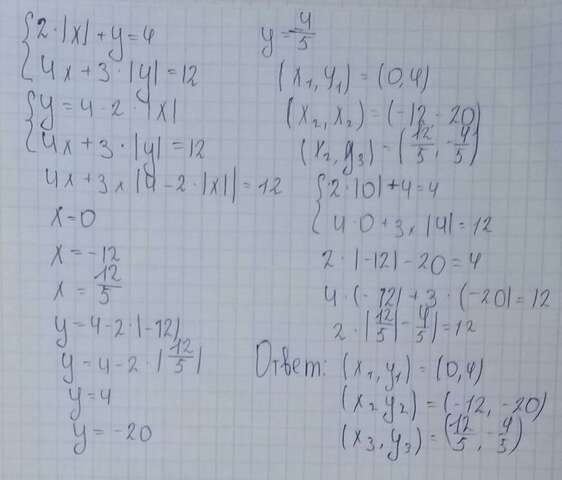 {2·|x|+y=4
4x+3·|y|=12
{y=4-2·|x|
4x+3·|y|=12
4x+3x|4-2·|x||=12
x=0
x=-12
x=12/5
y=4-2·|-12|
y=4-2·|12/5|
y=4
y=-20
y=4/5
(x₁,y₁)=(0,4)
(x₂,x₂)=(-12-20)
(x₂,y₃)=(12/5,-4/5)
{2·|0|+4=4
4·0+3x|4|=12
2·|-12|-20=4
4·(-12|+3·(-20|=12
2·|12/5|-4/5|=12
Ответ: (x₁,y₁)=(0,4)
(x₂y₂)=(-12,-20)
(x₃,y₃)=(12/5,-4/5)